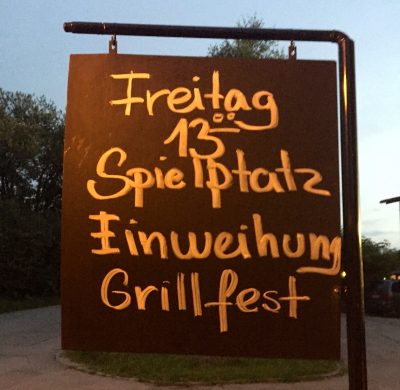 Freitag
13⁰⁰
Spielptatz
Einweihung
Grillfest